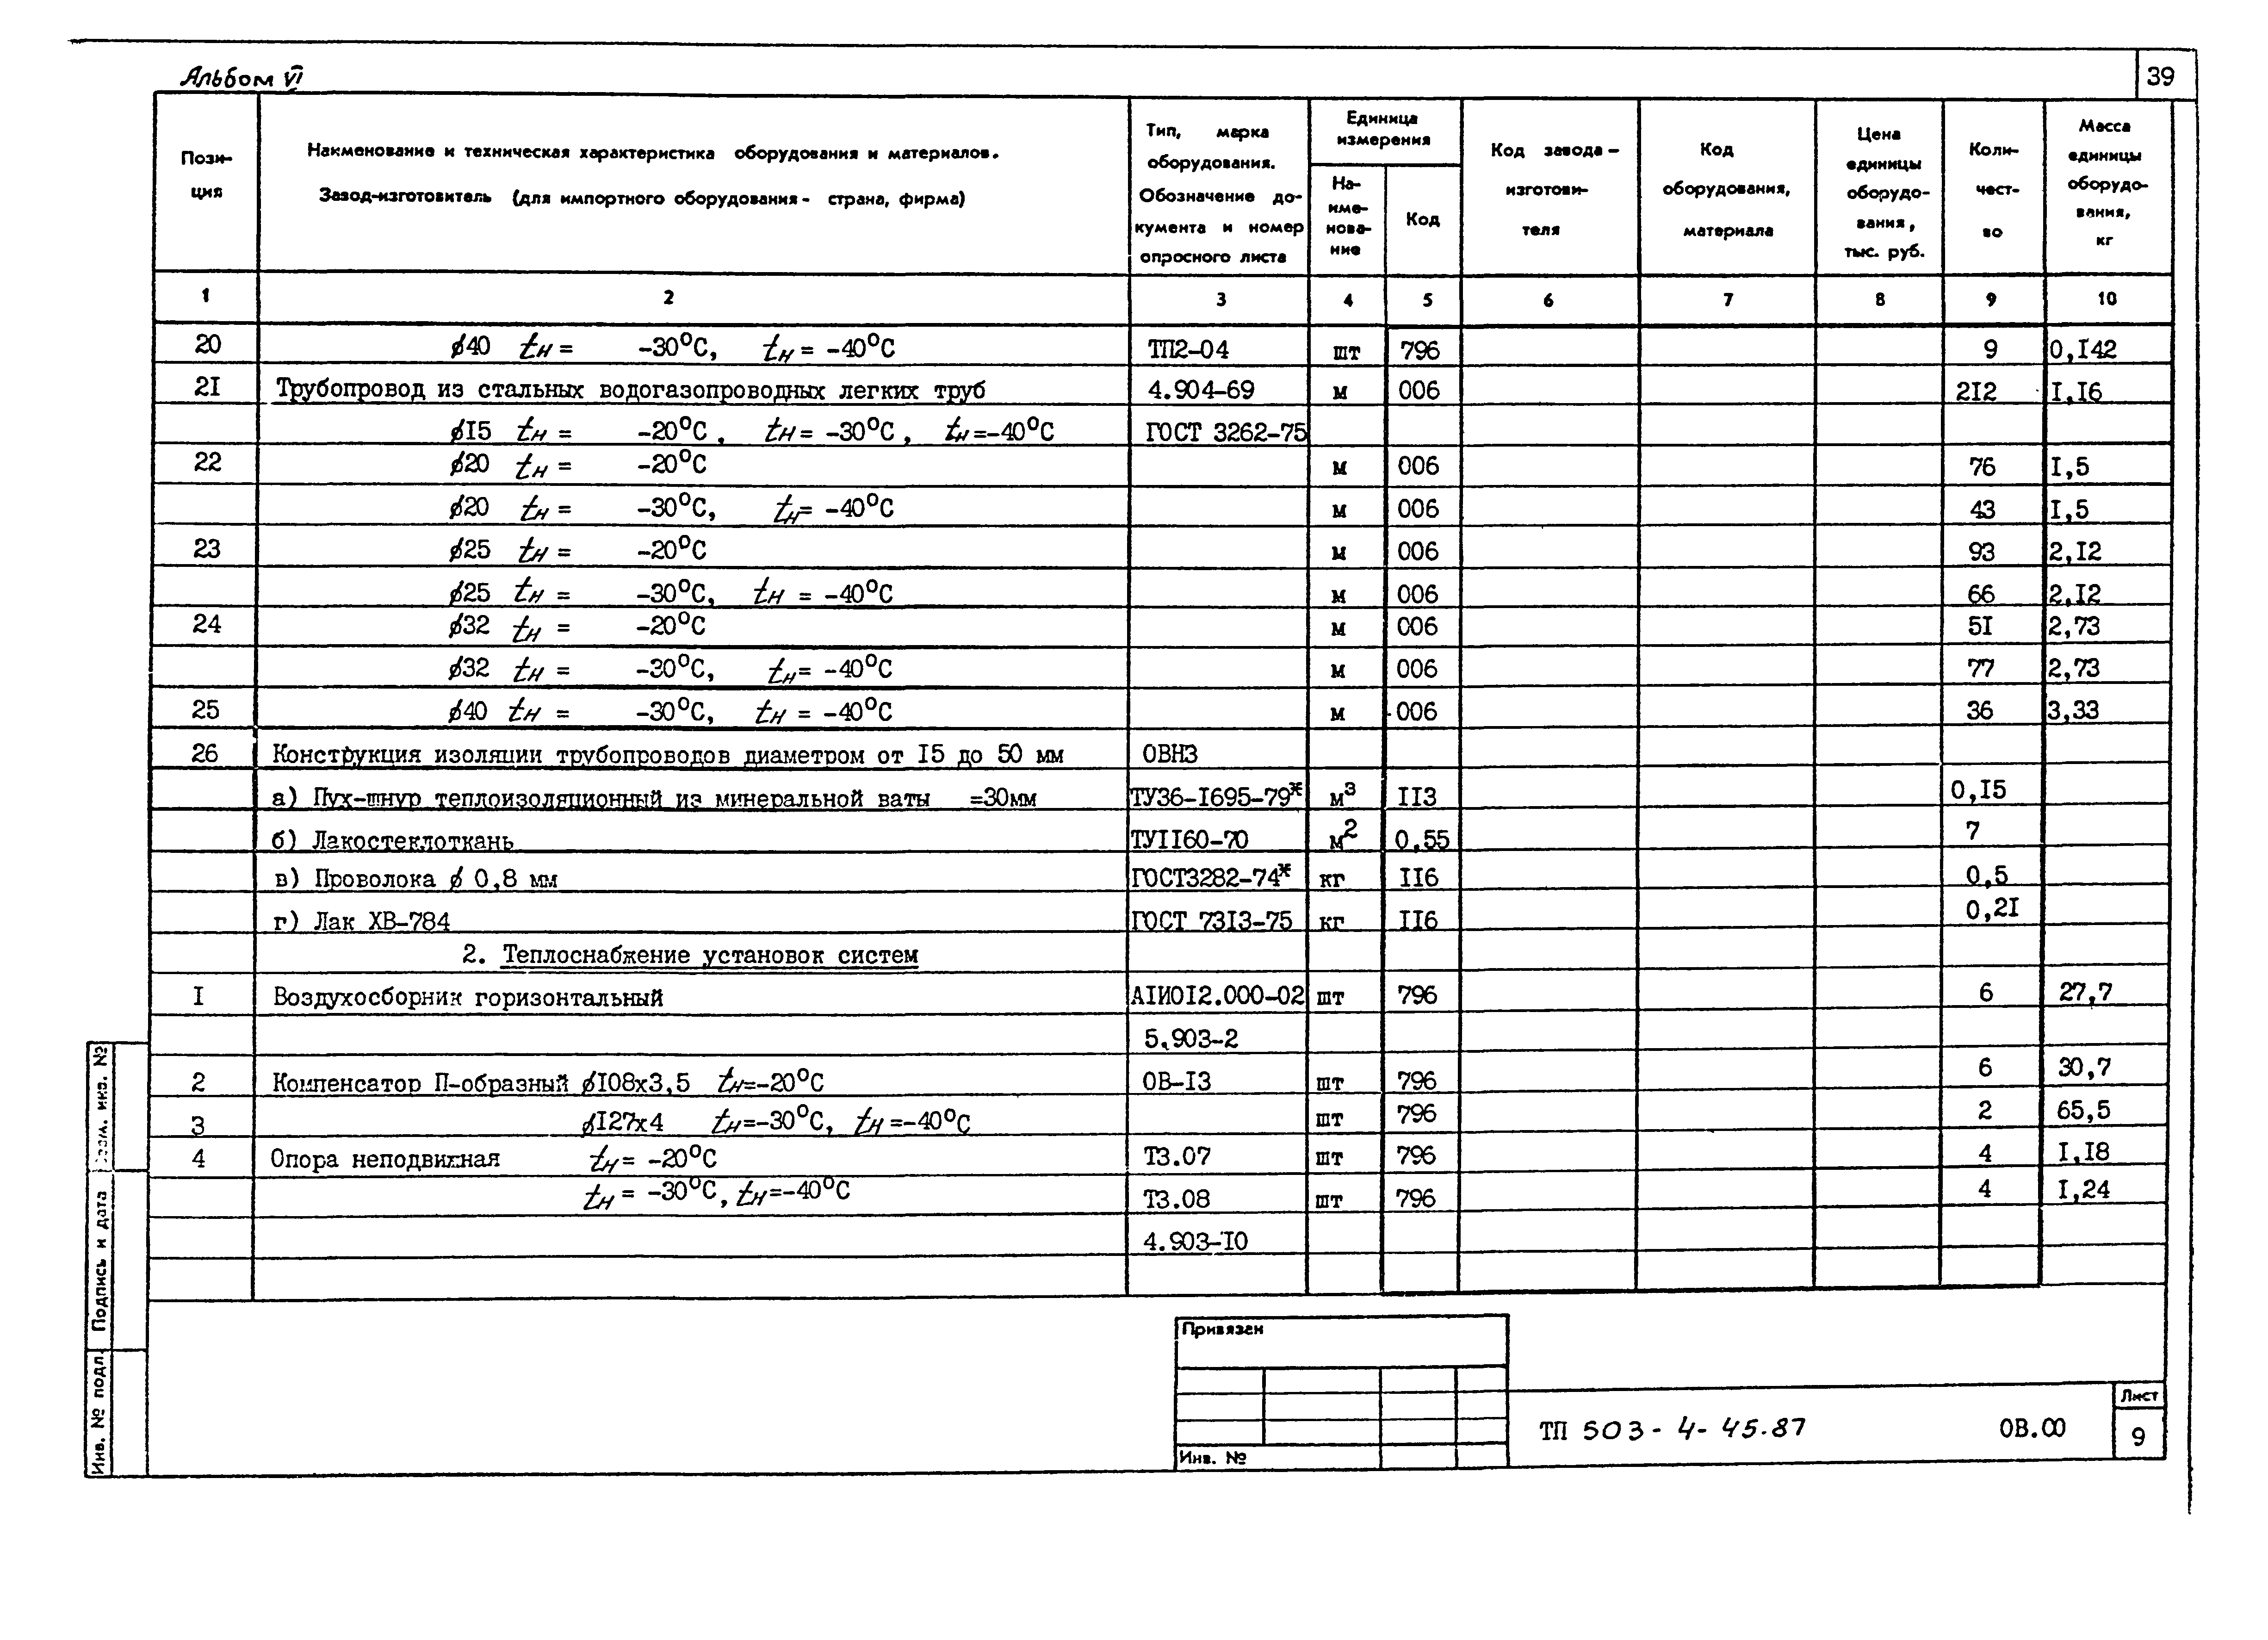 Альбом VI
39
Пози-
ция
Наименование и техническая характеристика оборудования и материалов.
Завод-изготовитель (для импортного оборудования - страна, фирма)
Тип, марка
оборудования.
Обозначение до-
кумента и номер
опросного листа
Единица
измерения
На-
име-
нова-
ние
Код
Код завода-
изготови-
теля
Код
оборудования,
материала
Цена
единицы
оборудо-
вания,
тыс. руб.
Коли-
чест-
во
Масса
единицы
оборудо-
вания,
кг
1 2 3 4 5 6 7 8 9 10
20 ø40 tн = -30°С, tн = -40°С ТП2-04 шт 796 9 0,I42
2I Трубопровод из стальных водогазопроводных легких труб 4.904-69 м 006 2I2 I,I6
øI5 tн = -20°С, tн = -30°С, tн =-40°С ГОСТ 3262-75
22 ø20 tн = -20°С м 006 76 I,5
ø20 tн = -30°С, tн= -40°С м 006 43 I,5
23 ø25 tн = -20°С м 006 93 2,I2
ø25 tн = -30°С, tн = -40°С м 006 66 2,I2
24 ø32 tн = -20°С м 006 5I 2,73
ø32 tн = -30°С, tн= -40°С м 006 77 2,73
25 ø40 tн = -30°С, tн = -40°С м 006 36 3,33
26 Конструкция изоляции трубопроводов диаметром от I5 до 50 мм ОВН3
а) Пух-шнур теплоизоляционный из минеральной ваты =30мм ТУ36-I695-79ж м³ II3 0,I5
б) Лакостеклоткань ТУII60-70 м² 0,55 7
в) Проволока ø 0,8 мм ГОСТ3282-74ж кг II6 0,5
г) Лак ХВ-784 ГОСТ 73I3-75 кг II6 0,2I
2. Теплоснабжение установок систем
I Воздухосборник горизонтальный АIИ0I2.000-02 шт 796 6 27,7
5.903-2
2 Компенсатор П-образный øI08х3,5 tн=-20°С ОВ-I3 шт 796 6 30,7
3 øI27х4 tн=-30°С, tн =-40°С шт 796 2 65,5
4 Опора неподвижная tн = -20°С Т3.07 шт 796 4 I,I8
tн = -30°С, tн=-40°С Т3.08 шт 796 4 I,24
4.903-I0
Взам. инв. №
Подпись и дата
Инв. № подл.
Привязан
Инв. №
ТП 503-4-45.87 ОВ.00
Лист
9